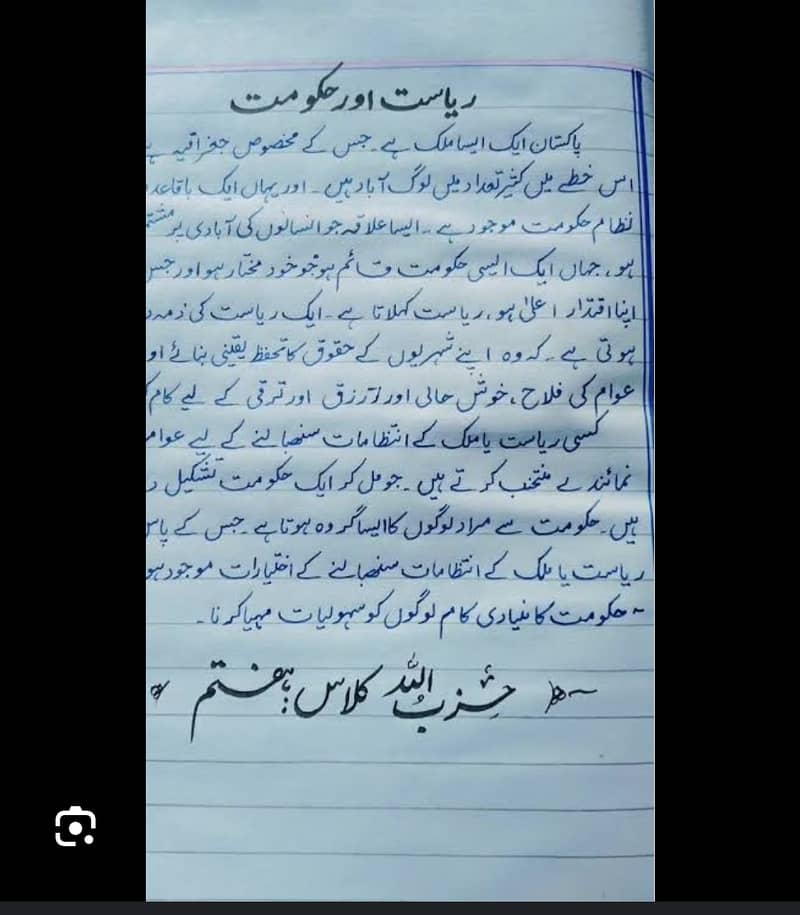 ریاست اور حکومت
پاکستان ایک ایسا ملک ہے۔ جس کے مخصوص جغرافیہ
اس خطے میں کثیر تعداد میں لوگ آباد ہیں۔ اور یہاں ایک باقاعدہ
نظام حکومت موجود ہے۔ ایسا علاقہ جو انسانوں کی آبادی پر مشتمل
ہو، جہاں ایک ایسی حکومت قائم ہو جو خود مختار ہو اور جس
اپنا اقتدار اعلیٰ ہو، ریاست کہلاتا ہے۔ ایک ریاست کی
ہوتی ہے۔ کہ وہ اپنے شہریوں کے حقوق کا تحفظ یقینی بنائے
عوام کی فلاح، خوش حالی اور رزق اور ترقی کے لیے کام
کسی ریاست یا ملک کے انتظامات سنبھالنے کے لیے عوام
نمائندے منتخب کرتے ہیں۔ جو مل کر ایک حکومت تشکیل
ہیں۔ حکومت سے مراد لوگوں کا ایسا گروہ ہوتا ہے۔ جس کے پاس
ریاست یا ملک کے انتظامات سنبھالنے کے اختیارات موجود ہو
۔ حکومت کا بنیادی کام لوگوں کو سہولیات مہیا کرنا۔
حزب اللہ کلاس: ہفتم